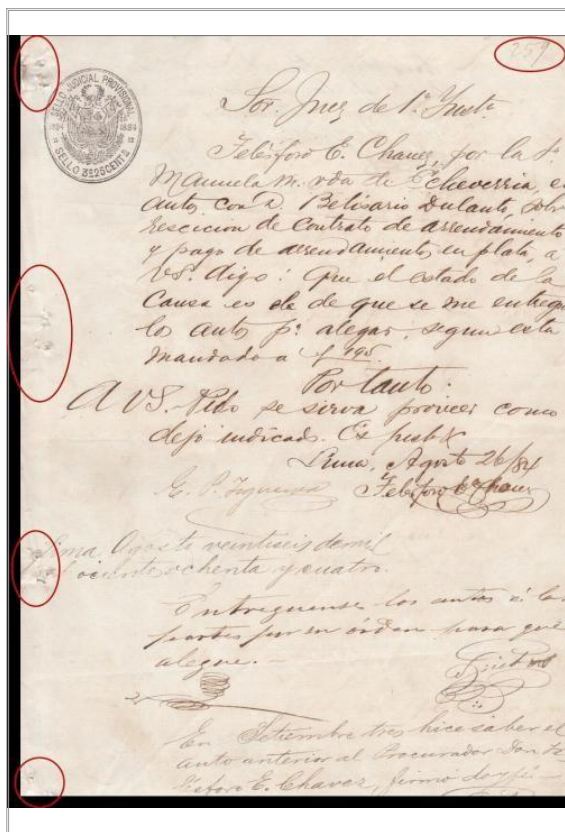 259
SELLO JUDICIAL PROVISIONAL
1884 1884
SELLO 3º 25 CENTS
Sor. Juez de 1ª Insta.
Telésforo E. Chavez, por la Sª
Manuela M. vda de Echeverria, en
autos con D. Belisario Dulanto, sobre
rescicion de Contrato de arrendamiento
y pago de arrendamientos en plata, a
VS. digo: Que el estado de la
Causa es el de que se me entregue
los autos pª alegar, segun esta
mandado a f 195.
Por tanto:
A VS. Pido se sirva proveer como
dejo indicado. Es just&
Lima, Agosto 26/84
Telésforo E. Chavez
Lima Agosto veintiseis de mil
ochocientos ochenta y cuatro.
Entreguense los autos á las
partes por su órden para que
alegue.
En Setiembre tres hice saber el
auto anterior al Procurador Don Te
lésforo E. Chavez, firmó doy fé